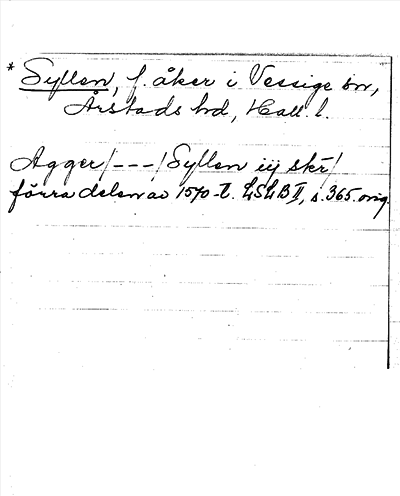 * Syllen, f. åker i Vessige sn,
Årstads hd, Hall. l.
Agger/---/Syllen iij skr/
förra delen av 1570-t. LSLB II, s. 365. orig.